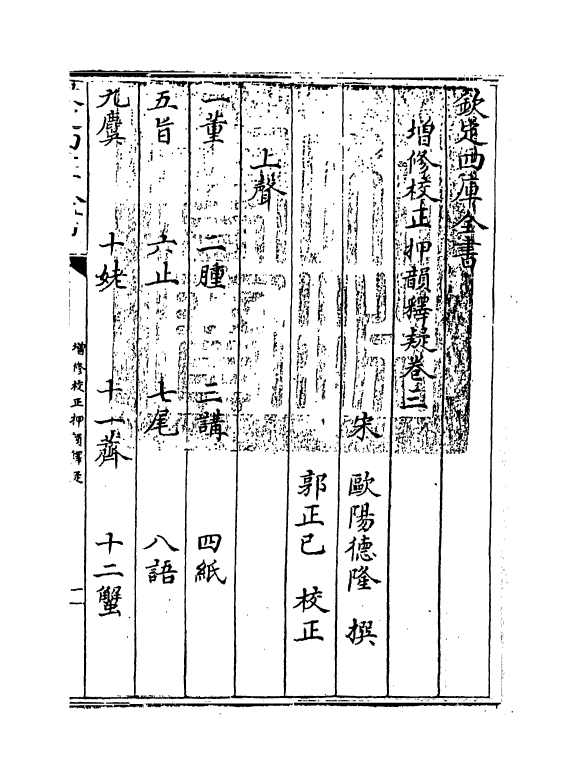 欽定四庫全書
增修校正押韻釋疑卷三
宋 歐陽德隆 撰
郭正已 校正
上聲
一董 二腫 三講 四紙
五旨 六止 七尾 八語
九麌 十姥 十一薺 十二蟹
增修校正押韻釋疑